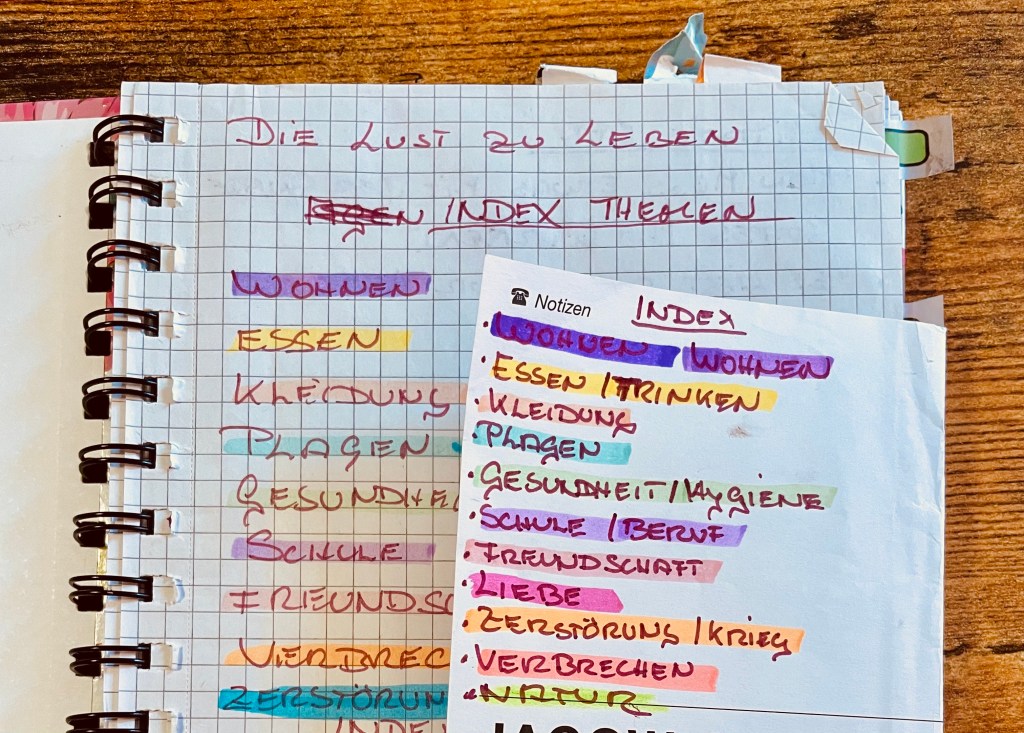 DIE LUST ZU LEBEN
INDEX THEMEN
WOHNEN
ESSEN
KLEIDUNG
PLAGEN
GESUNDHEI
SCHULE
FREUNDSC
VERBREC
ZERSTÖRUN
INDE
Notizen INDEX
WOHNEN WOHNEN
ESSEN / TRINKEN
KLEIDUNG
PLAGEN
GESUNDHEIT / HYGIENE
SCHULE / BERUF
FREUNDSCHAFT
LIEBE
ZERSTÖRUNG / KRIEG
VERBRECHEN
NATUR